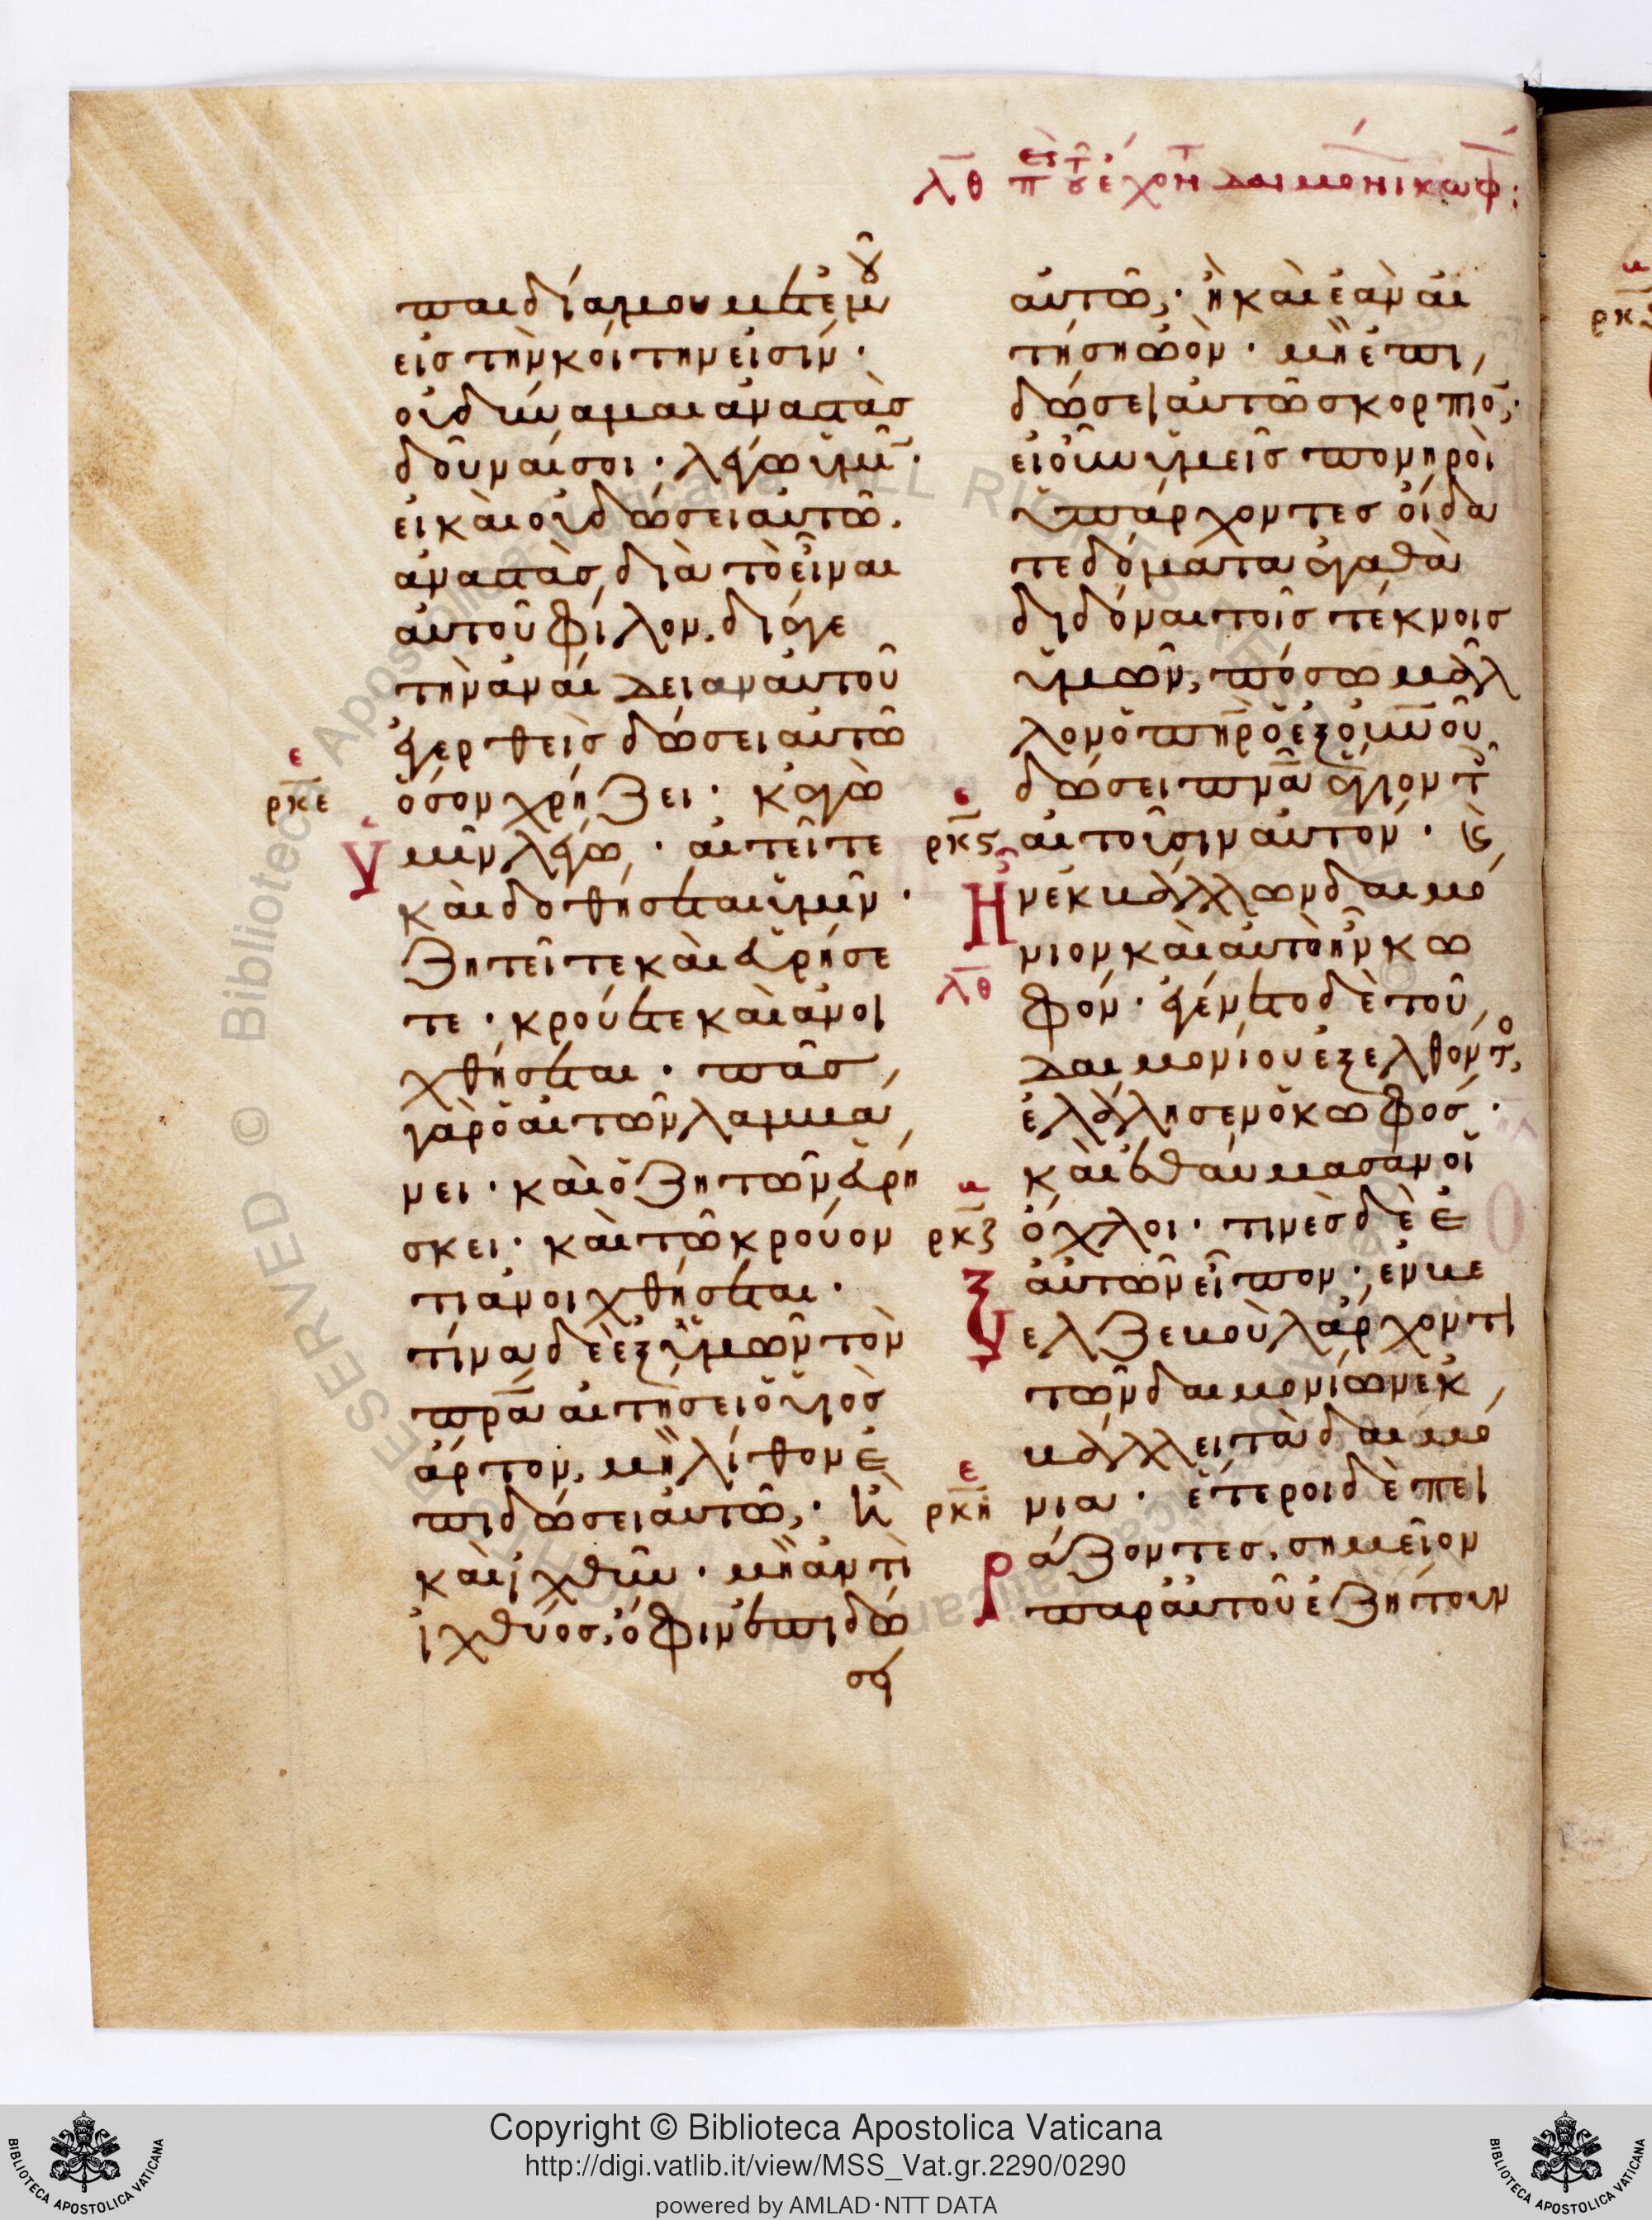 λθ π̅ τοῦ ἔχοντ δαιμόνι κωφ:
παιδία μου μετ ἐμοῦ
εἰς τὴν κοίτην εἰσίν·
οὐ δύναμαι ἀναστὰς
δοῦναί σοι· λέγω ὑμῖ·
εἰ καὶ οὐ δώσει αὐτῶ.
ἀναστὰς, διὰ τὸ εἶναι
αὐτοῦ φίλον. διά γε
τὴν ἀναίδειαν αὐτοῦ
ἐγερθεὶς δώσει αὐτῶ
ε
ρκε
ὅσον χρήζει· κἀγὼ
ὑμῖν λέγω, · αἰτεῖτε
καὶ δοθήσεται ὑμῖν ·
ζητεῖτε καὶ εὑρήσε
τε · κρούετε καὶ ἀνοι
χθήσεται · πᾶς
γὰρ ὁ αἰτῶν λαμβά
νει · καὶ ὁ ζητῶν εὑρί
σκει · καὶ τῶ κρούον
τι ἀνοιχθήσεται ·
τίνα δὲ ἐξ ὑμῶν τὸν
πρα αἰτήσει ὁ υἱὸς
ἄρτον, μὴ λίθον ἐ
πιδώσει αὐτῶ, · ἢ
καὶ ἰχθῦν · μὴ ἀντὶ
ἰχθύος, ὄφιν ἐπιδώ
σει
αὐτῶ, · ἢ καὶ ἐὰν αἰ
τήση ὠόν · μὴ ἐπι,
δώσει αὐτῶ σκορπίο,·
εἰ οὖν ὑμεῖς πονηροὶ
ὑπάρχοντες οἴδα
τε δόματα ἀγαθὰ
διδόναι τοῖς τέκνοις
ὑμῶν, πόσω μᾶλ
λον ὁ πηρ ὁ ἐξ οὐνοῦ
δώσει πνα ἅγιον τ
ε
ρκς
αἰτοῦσιν αὐτόν · κ,
Ἦν ἐκβάλλων δαιμό
λθ
νιον καὶ αὐτὸ ἦν κω
φόν · ἐγένετο δὲ τοῦ
δαιμονίου ἐξελθοντο,
ἐλάλησεν ὁ κωφός ·
καὶ ἐθαύμασαν οἱ
ρκζ
ὄχλοι · τινὲς δὲ ἐ
ξ αὐτῶν εἶπον · ἐν βε
ελζεβοὺλ ἄρχοντι
τῶν δαιμονίων ἐκ
βάλλει τὰ δαιμό
ε
ρκη
νια · ἕτεροι δὲ πει
ράζοντες, σημεῖον
παρ αὐτοῦ ἐζήτουν
Copyright © Biblioteca Apostolica Vaticana
http://digi.vatlib.it/view/MSS_Vat.gr.2290/0290
powered by AMLAD·NTT DATA
BIBLIOTECA APOSTOLICA VATICANA
BIBLIOTECA APOSTOLICA VATICANA